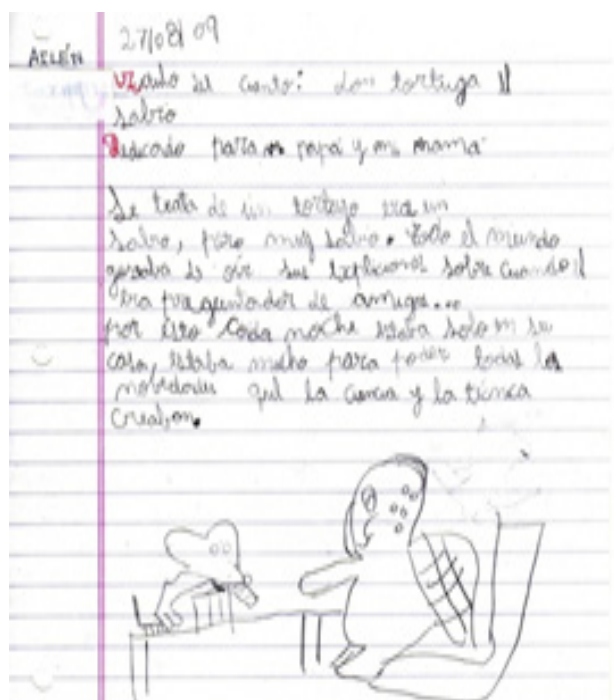 27/08/09
AILÉN
Título del cuento: don tortuga el
sabio
Dedicado para mi papá y mi mamá
Se trata de un tortugo era un
sabio, pero muy sabio. todo el mundo
gozaba de oír sus explicaciones sobre cuando el
era de amigos...
por eso cada noche estaba solo en su
casa, estaba mucho para poder todas las
novedades que la ciencia y la técnica
creaban.